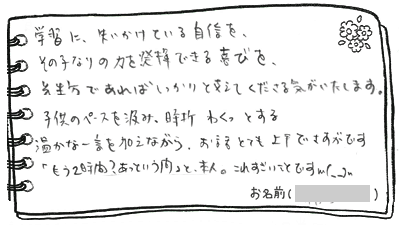 学習に、失いかけている自信を、
その子なりの力を発揮できる喜びを、
先生方であればしっかりと支えてくださる気がいたします。
子供のペースを汲み、時折 わくっとする
温かな一言を加えながら、お話もとても上手でさすがです
「もう2時間？あっという間」と、本人。これすごいことですm(__)m
お名前(　　　　)